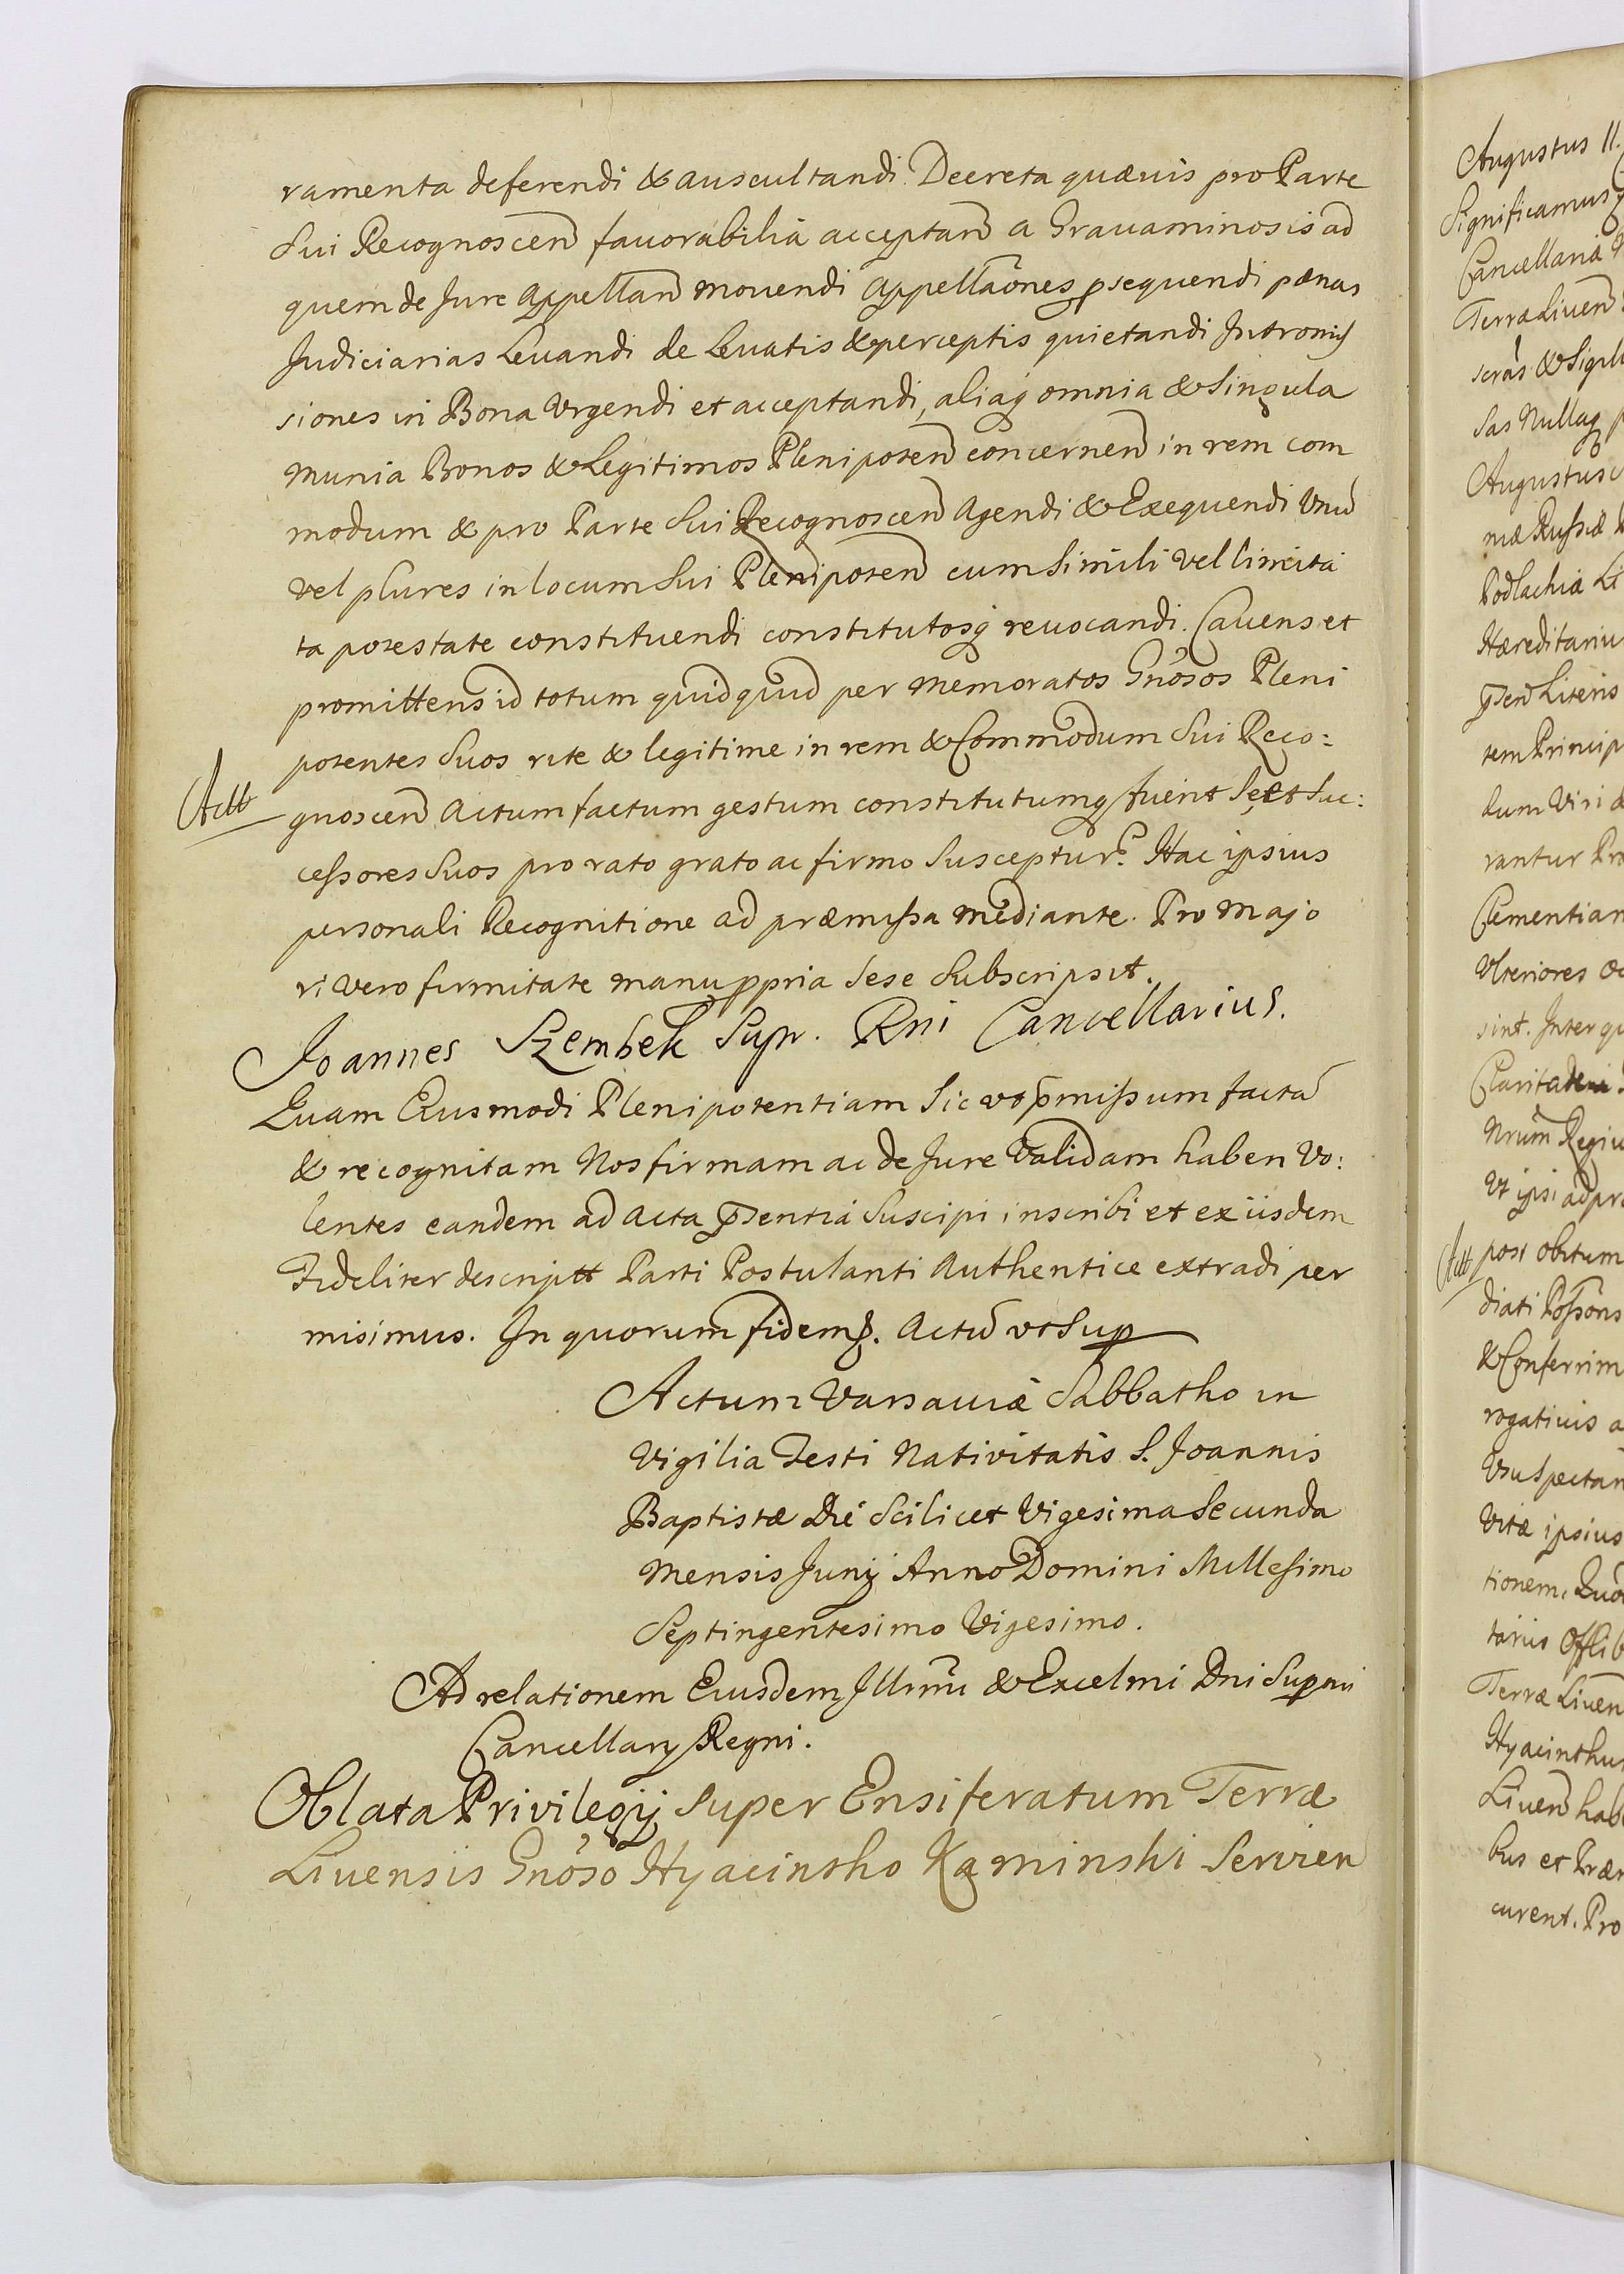 ramenta deferendi & auscultandi. Decreta quævis pro Parte
Sui Recognoscen favorabilia acceptan a Gravaminosis ad
quem de Jure Appellan movendi Appellaōnes psequendi pœnas
Judiciarias Levandi de Levatis & perceptis quietandi Intromis
siones in Bona Vrgendi et acceptandi, aliaq omnia & Singula
munia Bonos & Legitimos Plenipoten concernen in rem com
modum & pro Parte Sui Recognoscen Agendi & Exequendi Vnū
vel plures in locum Sui Plenipoten cum Simili vel limita
ta potestate constituendi constitutosq revocandi. Cavens et
promittens id totum quidquid per Memoratos Gnōsos Pleni
potentes Suos rite & legitime in rem & Commodum Sui Reco:
Actt
gnoscen Actum factum gestum constitutumq fuerit Se et Suc:
cessores Suos pro rato grato ac firmo Suscepturꝰ. Hac ipsius
personali Recognitione ad præmissa mediante. Pro Majo
ri vero firmitate manu ppria Sese Subscripsit.
Joannes Szembek Supr. Rni Cancellarius.
Quam Eiusmodi Plenipotentiam Sic vt p̄missum factā
& recognitam Nos firmam ac de Jure Validam haben Vo:
lentes eandem ad Acta p̄sentia Suscipi inscribi et ex iisdem
Fideliter descriptt Parti Postulanti Authentice extradi per
misimus. In quorum fidem. Actū vt Sup
Actum Varsaviæ Sabbatho in
Vigilia Festi Nativitatis S. Joannis
Baptistæ Die Scilicet Vigesima Secunda
Mensis Junij Anno Domini Millesimo
Septingentesimo Vigesimo.
Ad relationem Eiusdem Illmi & Excelmi Dni Supmi
Cancellarij Regni.
Oblata Privilegij Super Ensiferatum Terræ
Livensis Gnōso Hyacintho Kaminski Servien
Augustus II.
Significamus
Cancellaria
Terræ Liven
& Sigill
Sas Nullaq
Augustus
Russiæ
Podlachiæ Li
Hæreditarius
p̄sen Literis
tem Princip
dum Viri
rantur Pro
Clementiam
Vlteriores
sint. Inter qu
Claritatem
Nrum Regiu
Vt ipsi ad
Actt post obitum
diati Possons
& Conferrim
rogativis a
Vsu Spectan
Vitæ ipsius
tionem. Quo
Offlib
Terræ Liven
Hyacinthu
Liven hab
bus et Præ
curent. Pro